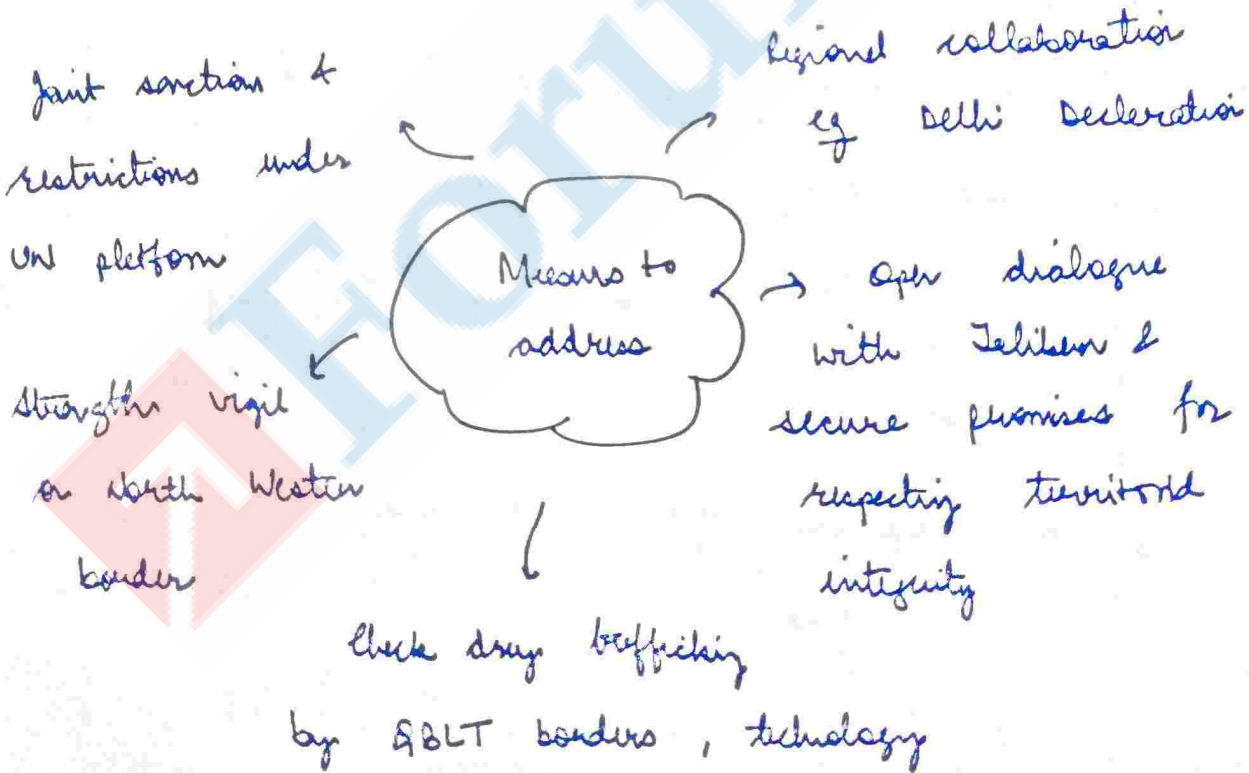 Joint sanctions &
restrictions under
UN platform
Regional collaboration
eg Delhi Declaration
Means to
address
Open dialogue
with Taliban &
secure promises for
respecting territorial
integrity
Strengthen vigil
on North Western
border
Check drug trafficking
by borders, technology
Forum